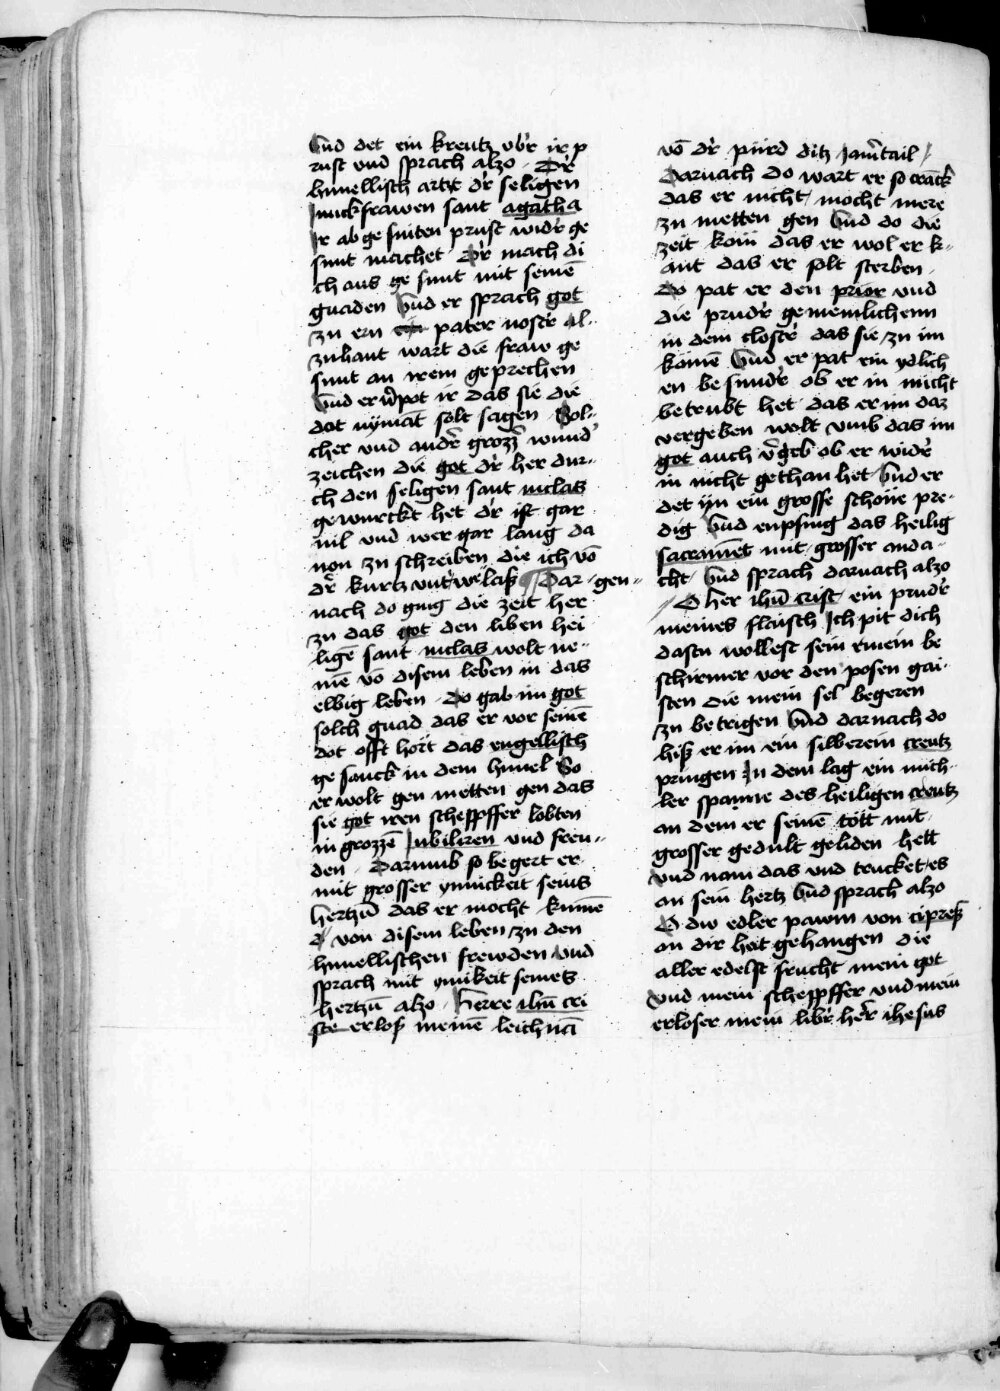 Vnd det ein kreutz vbr̄ ir p
rust vnd sprach alzo · Dr̄
himellisch artzt dr̄ seligen
Junckfrawen sant agatha
Ir ab ge sniten prust widr̄ ge
sunt machet · Dr̄ mach di
ch aus ge sunt mit seinē
gnaden Vnd er sprach got
zu ern ein pater nostr̄ Al-
zuhant wart die fraw ge
sunt an irem geprechen
Vnd er v̄pot ir das sie die
dat nymāt solt sagen Sol-
cher vnd andr̄ grozz̄ wund̄
zeichen die got dr̄ her dur-
ch den seligen sant niclas
gewurckt het dr̄ ist gar
uil vnd wer gar lang da
uon zu schreiben die ich vō
dr̄ kurtz vnt welaß Dar-gen-
nach do ging die zeit her
zu das got den liben hei
ligē sant niclas wolt ne-
mē vō disem leben in das
elbig leben · Do gab im got
solch gnad das er vor seinē
dot offt hort das engellisch
ge sanck in dem himel So
er wolt gen metten gen das
sie got iren scheppffer lobten
in grozzē Jubiliren vnd freu-
den · Darumb so begert er
mit grosser ynnickeit seins
hertzn̄ das er mocht kumē
d von disem leben zu den
himellischen frewden Vnd
sprach mit ynikeit seines
hertzn̄ alzo · Herre ihū cri
ste erlos meinē leichnā
vō dr̄ pürd ditz Jam̄tail /
Darnach do wart er so cranck
das er nicht mocht mere
zu metten gen Vnd do die
zeit kom das er wol er k-
ant das er solt sterben ·
Do pat er den prior vnd
die prudr̄ gemeinlichenn
in dem clostr̄ das sie zu im
komē Vnd er pat ein ydlich
en be sundr̄ ob er in nicht
betrubt het das er im daz
vergeben wolt vmb das im
got auch v̄geb ob er widr̄
in nicht gethan het Vnd er
det yn ein grosse schone pre-
dig Vnd enpfing das heilig
sacramēt mit grosser anda-
cht · Vnd sprach darnach alzo
/ O her ihū crist ein prudr̄
meines fleisch Ich pit dich
dastu wollest sein e mein be
schirmer vor den posen gai-
sten die mein sel begeren
zu betrigen Vnd darnach do
hiß er im ein silberein creutz
pringen In dem lag ein mich-
ler spanne des heiligen creutz
an dem er seinē tott mit
grosser gedult geliden hett
Vnd nam das vnd trucket es
an sein hertz Vnd sprach alzo
O dw edler pawm von cipreß
an dir hat gehangen die
aller edelst frucht mein got
Vnd mein scheppffer vnd mein
erloser mein libr̄ her̄ ihesus